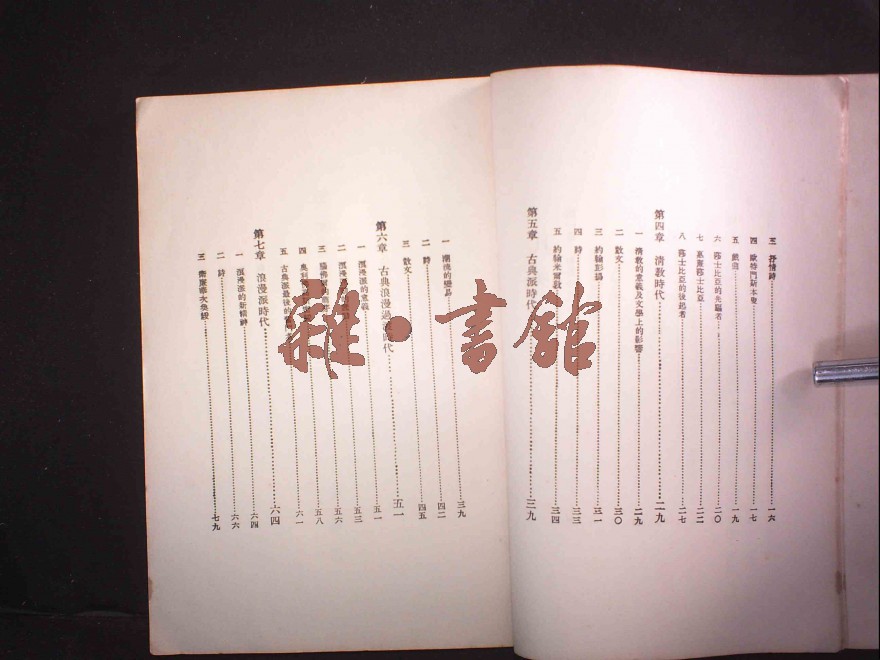 三 抒情詩……一六
四 歐特門斯本塞……一七
五 戲曲……一九
六 莎士比亞的先驅者……二〇
七 葛廉莎士比亞……二二
八 莎士比亞的後起者……二七
第四章 清教時代……二九
一 清教的意義及文學上的影響……二九
二 散文……三〇
三 約翰彭揚……三一
四 詩……三三
五 約翰米爾敦……三四
第五章 古典派時代……三九
一 潮流的變易……三九
二 詩……四二
三 散文……四五
第六章 古典浪漫過 時代……五一
一 浪漫派的意義……五一
二 浪漫……五三
三……五六
四 奧利……五八
五 古典派最後的……六一
第七章 浪漫派時代……六四
一 浪漫派的新精神……六四
二 詩……六六
三 衞廉華次華綏……七九
雜·書館